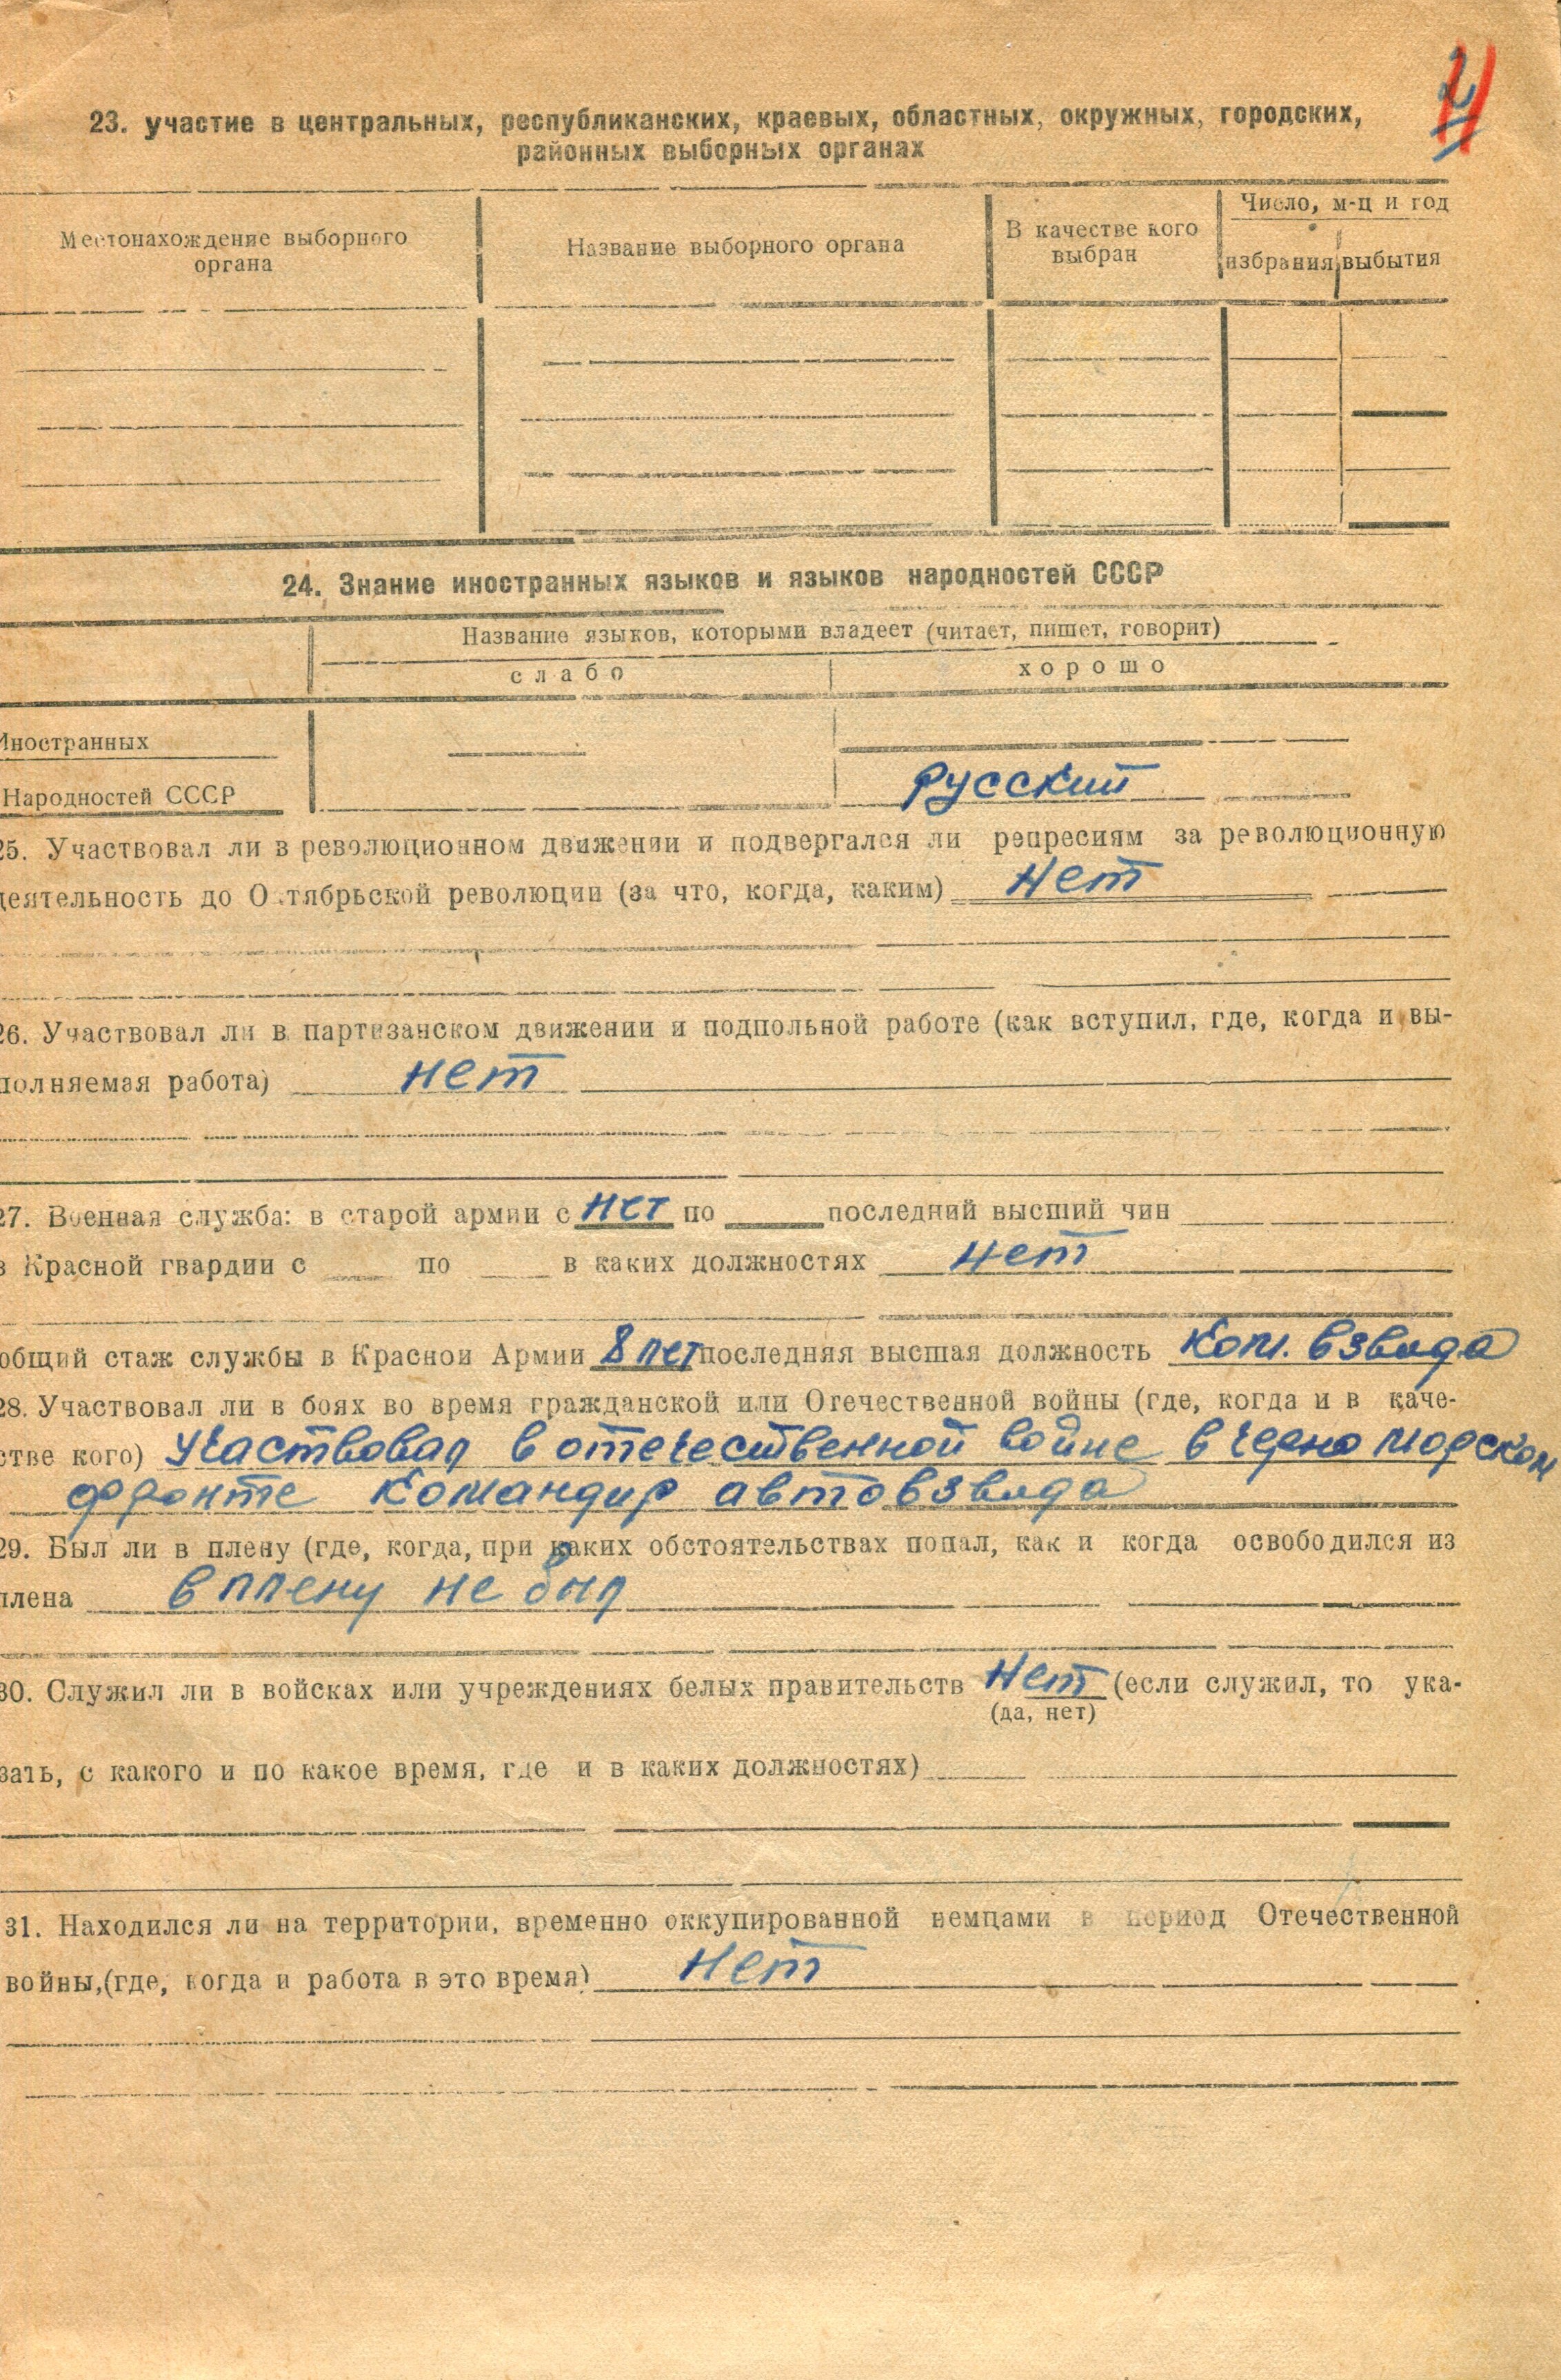 2
23. участие в центральных, республиканских, краевых, областных, окружных, городских,
районных выборных органах
Местонахождение выборного
органа
Название выборного органа
В качестве кого
выбран
Число, м-ц и год
избрания
выбытия
24. Знание иностранных языков и языков народностей СССР
Название языков, которыми владеет (читает, пишет, говорит)
слабо
хорошо
Иностранных
Народностей СССР
русский
25. Участвовал ли в революционном движении и подвергался ли репресиям за революционную
деятельность до Октябрьской революции (за что, когда, каким) Нет
26. Участвовал ли в партизанском движении и подпольной работе (как вступил, где, когда и вы-
полняемая работа) нет
27. Военная служба: в старой армии с нет по последний высший чин
в Красной гвардии с по в каких должностях нет
общий стаж службы в Красной Армии 8 лет последняя высшая должность Ком. взвода
28. Участвовал ли в боях во время гражданской или Отечественной войны (где, когда и в каче-
стве кого) Участвовал в отечественной войне в черно морском
фронте Командир автовзвода
29. Был ли в плену (где, когда, при каких обстоятельствах попал, как и когда освободился из
плена в плену не был
30. Служил ли в войсках или учреждениях белых правительств Нет (если служил, то ука-
(да, нет)
зать, с какого и по какое время, где и в каких должностях)
31. Находился ли на территории, временно оккупированной немцами в период Отечественной
войны,(где, когда и работа в это время) Нет